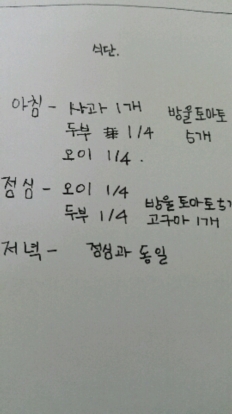 식단.
아침 - 사과 1개 방울토마토
두부 1/4 5개
오이 1/4.
점심 - 오이 1/4
두부 1/4 방울토마토 5개
고구마 1개
저녁 - 점심과 동일